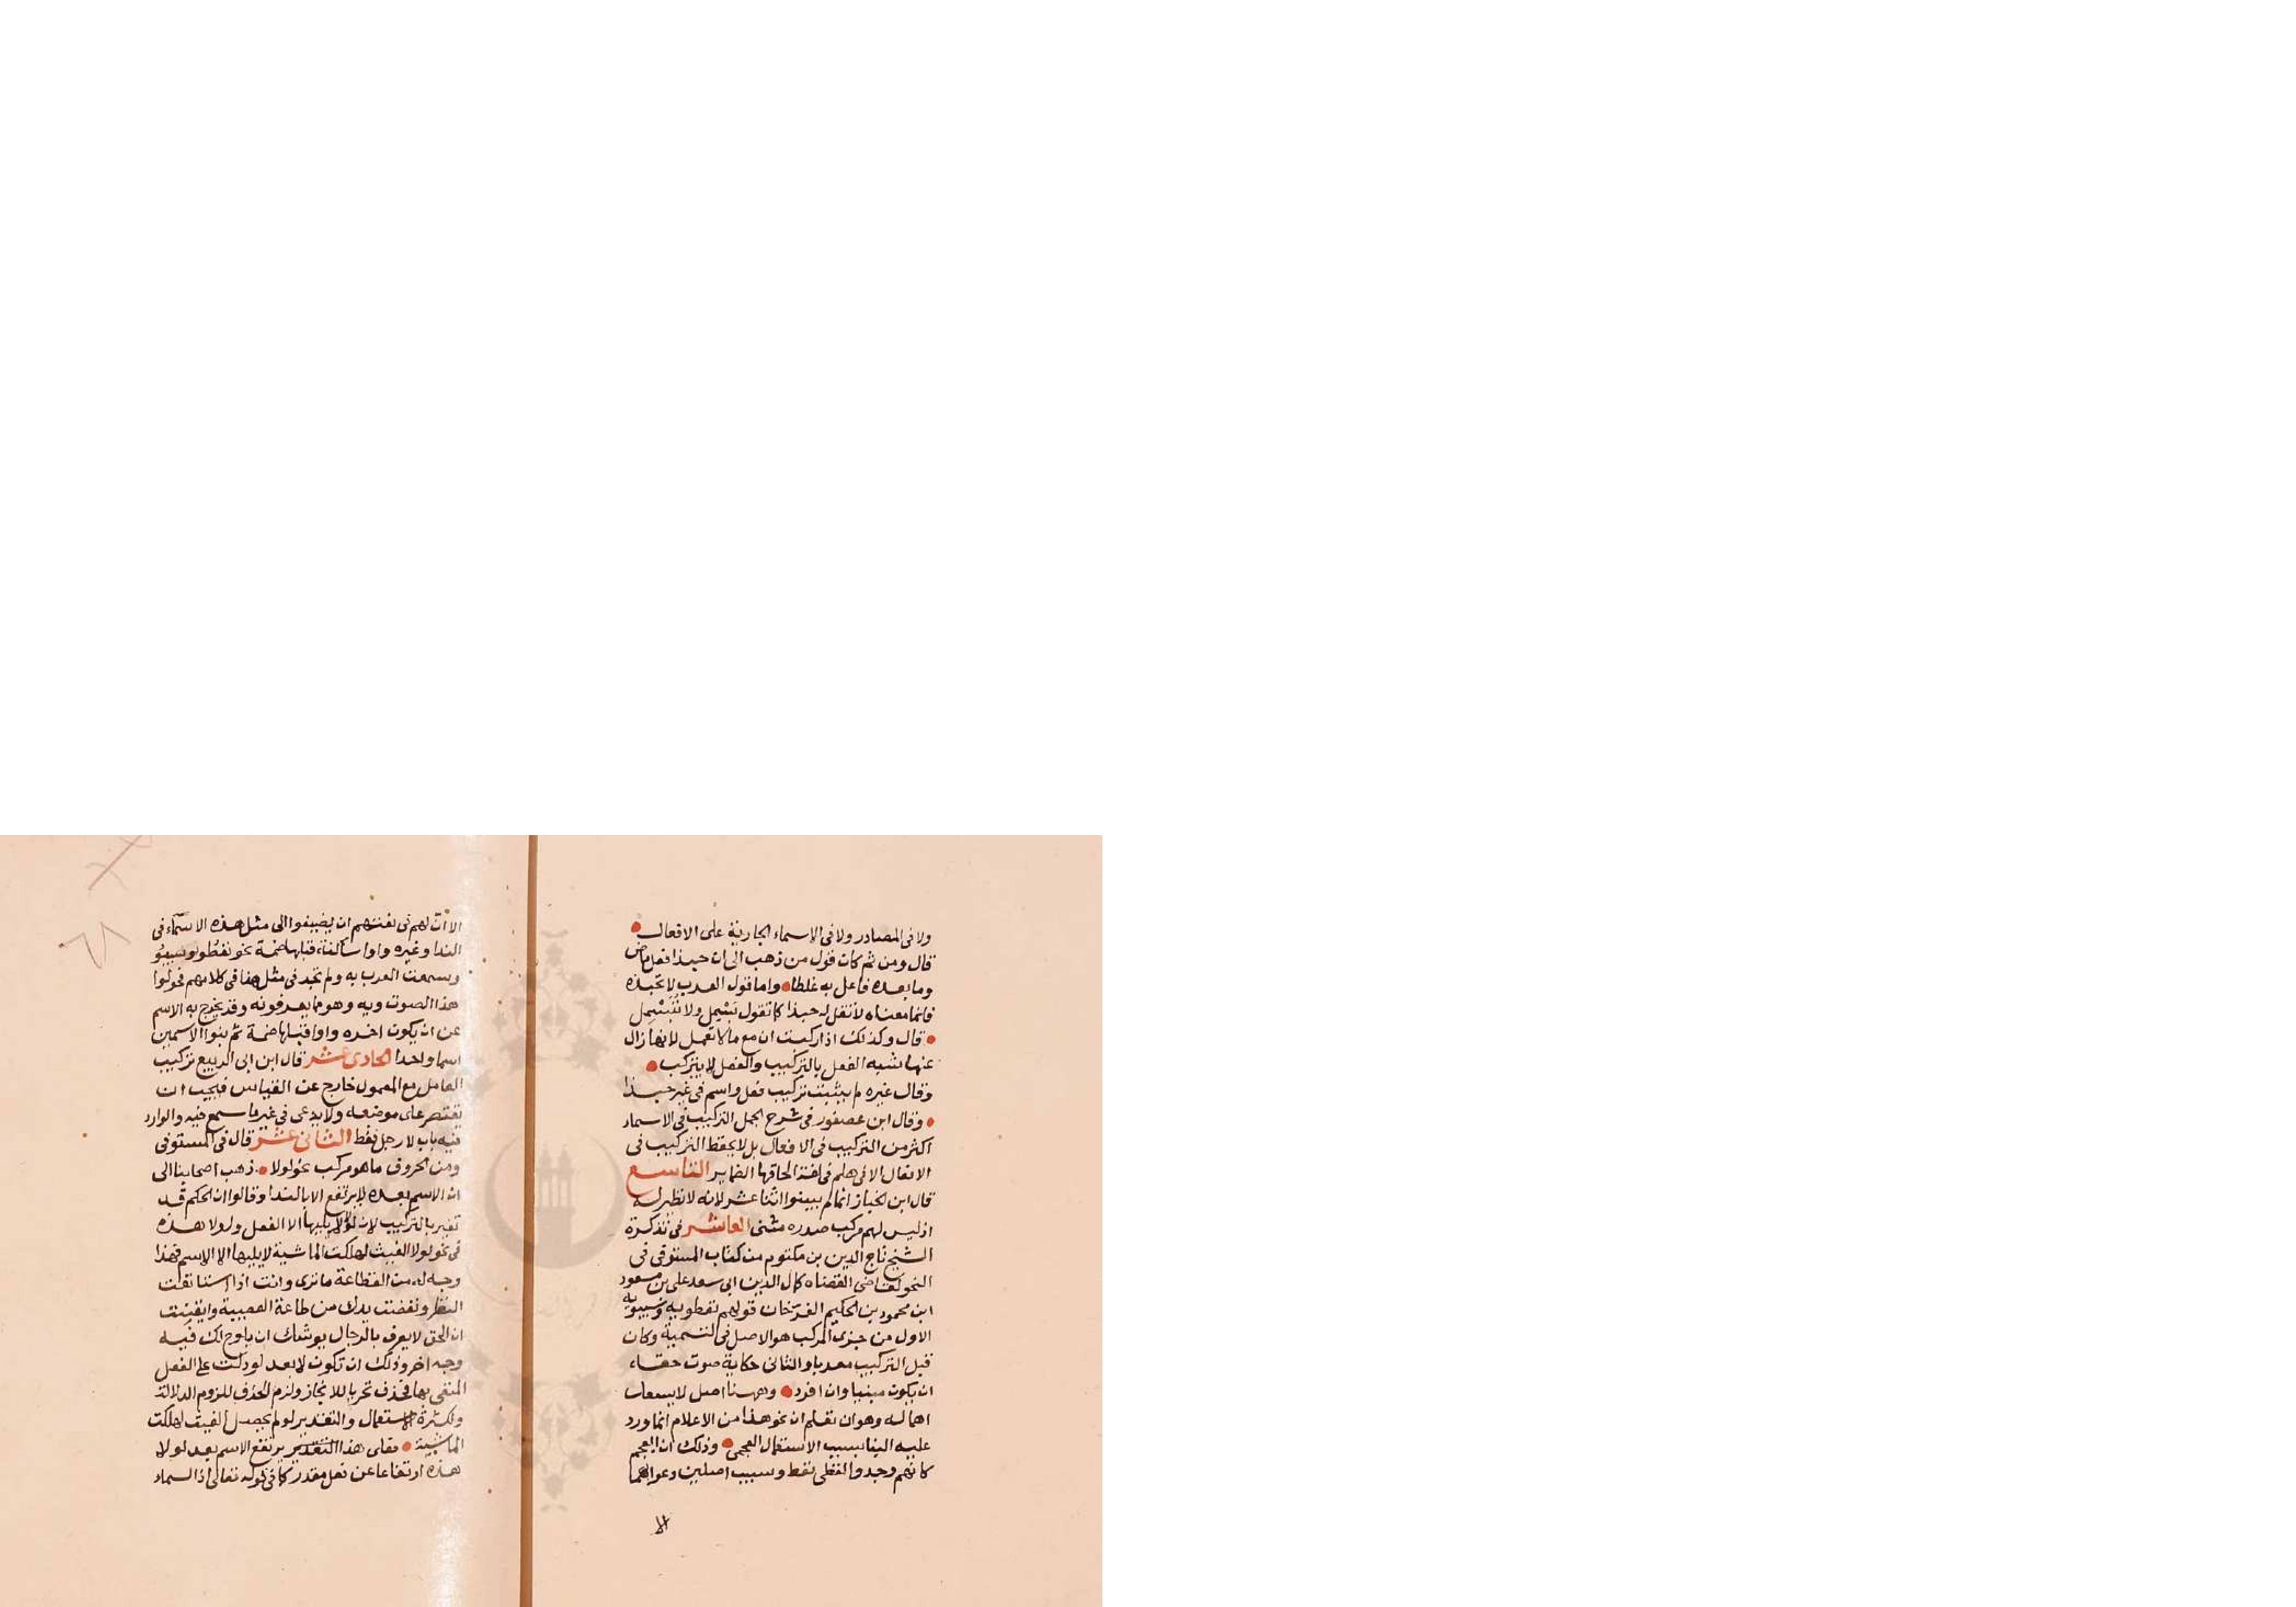 ولا في المصادر ولا في الاسماء الجارية على الافعال
قال ومن ثم كان قول من ذهب الى ان حبذا فعل ماض
وما بعده فاعل به غلطا واما قول العرب لا تحبذه
فانما معناه لا تقل له حبذا كما تقول بسمل ولا تبسمل
قال وكذلك اذا ركبت ان مع ما لا تعمل لانها زال
عنها شبه الفعل بالتركيب والفعل لا يتركب
وقال غيره لم يثبت تركيب فعل واسم في غير حبذا
وقال ابن عصفور في شرح الجمل التركيب في الاسماء
اكثر من التركيب في الافعال بل لا يحفظ التركيب في
الافعال الا في هلم في لغة الحاقها الضماير التاسع
قال ابن الخباز انما لم يبينوا اثنا عشر لانه لا نظير له
اذ ليس لهم مركب صدره مثنى العاشر في تذكرة
الشيخ تاج الدين بن مكتوم من كتاب المستوفى في
النحو لقاضي القضاه كمال الدين ابي سعد علي بن مسعود
ابن محمود بن الحكيم الفرخان قولهم نفطويه وسيبويه
الاول من جزى المركب هو الاصل في التسمية وكان
قبل التركيب معربا والثاني حكاية صوت حقه
ان يكون مبنيا وان افرد وههنا اصل لا يسعك
اهماله وهو ان تعلم ان نحو هذا من الاعلام انما ورد
علينه الينا بسبب الاستعمال العجمي وذلك ان العجم
كانهم وجدوا لفظي نفط وسيب اصلين دعوا بهما
الا
الا ان لهم في لغتهم ان يضيفوا الى مثل هذه الاسماء في
الندا وغيره واوا ساكنة قبلها ضمة نحو نفطو وسيبو
وسمعت العرب به ولم تجد في مثل هذا في كلامهم فحولوا
هذا الصوت ويه وهو مما يعرفونه وقد يخرج به الاسم
عن ان يكون اخره واوا قبلها ضمة ثم بنوا الاسمين
اسما واحدا الحادي عشر قال ابن ابي الربيع تركيب
العامل مع المعمول خارج عن القياس فيجب ان
نقتصر على موضعه ولا يدعى في غير ما سمع فيه والوارد
فيه باب لا رجل فقط الثاني عشر قال في المستوفى
ومن الحروف ما هو مركب نحو لولا ذهب اصحابنا الى
ان الاسم بعده لا يرتفع الا بالندا وقالوا ان الحكم قد
تغير بالتركيب لان لو لا يليها الا الفعل ولولا هذه
في نحو لولا الغيث لهلكت الماشية لا يليها الا الاسم فهذا
وجه له من الفظاعة ما ترى وانت اذا استانفت
النظر ونفضت يدك من طاعة العصبية وايقنت
ان الحق لا يعرف بالرجال يوشك ان يلوح لك فيه
وجه اخر وذلك ان تكون لا بعد لو دلت على الفعل
المنفي بها فحذف تحريا للايجاز ولزم الحذف للزوم الدلالة
ولكثرة الاستعمال والتقدير لو لم يحصل الغيث لهلكت
الماشية فعلى هذا التقدير يرتفع الاسم بعد لولا
هذه ارتفاعا عن فعل مقدر كما في قوله تعالى اذا السماء